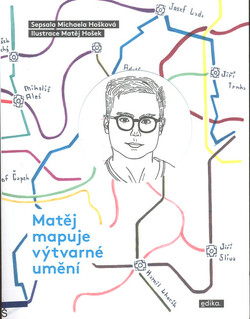 Sepsala Michaela Hošková
Ilustrace Matěj Hošek
Josef Lada
Mikoláš
Aleš
Jiří
Adolf
Matěj
mapuje
výtvarné
umění
Jiří
Slíva
Kamil Lhoták
edika